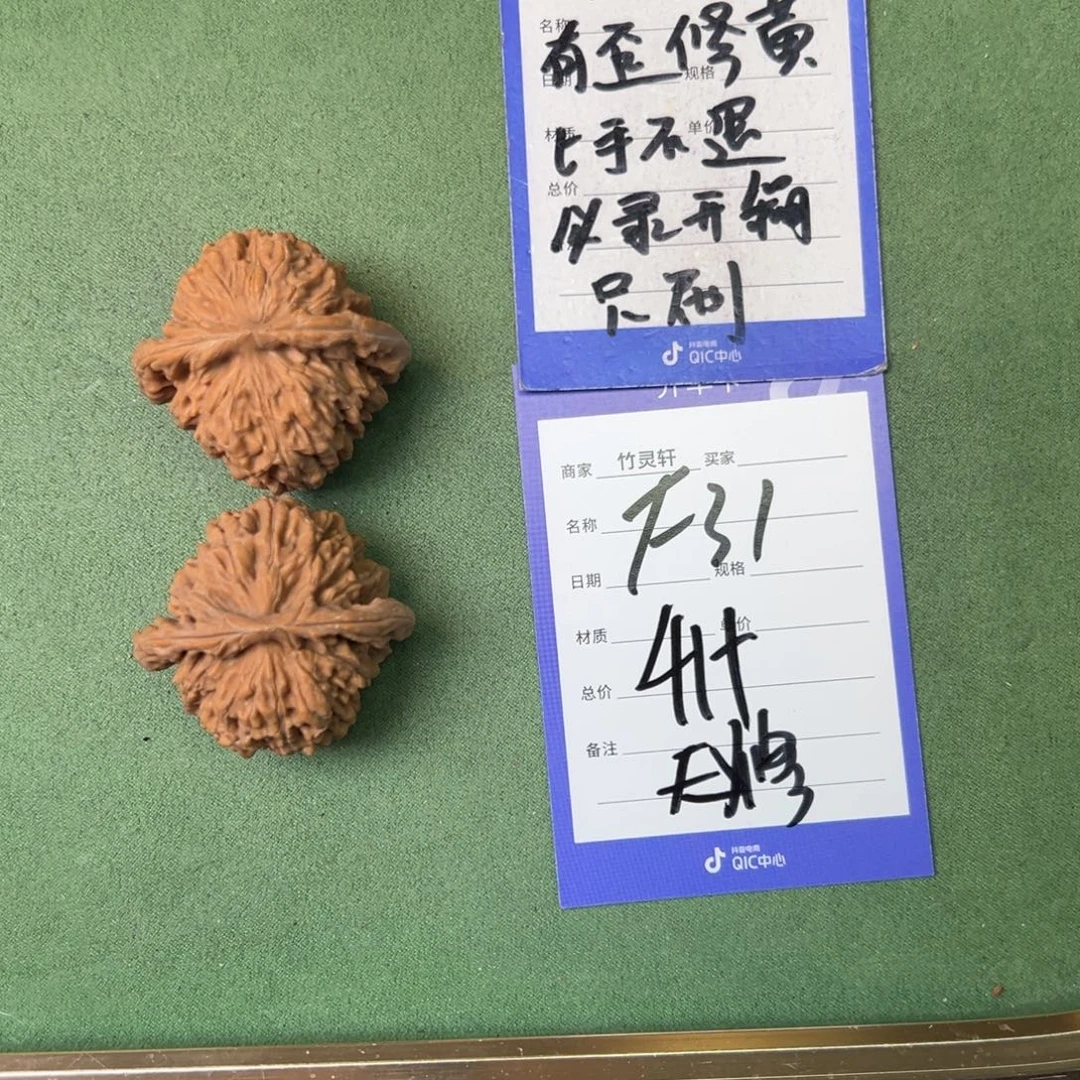 名称
有歪修黄
日期 规格
上手不退
材质 单价
总价
必录开箱
只刷
抖音电商
QIC中心
商家 竹灵轩 买家
名称
日期 规格
材质 单价
总价
备注
抖音电商
QIC中心